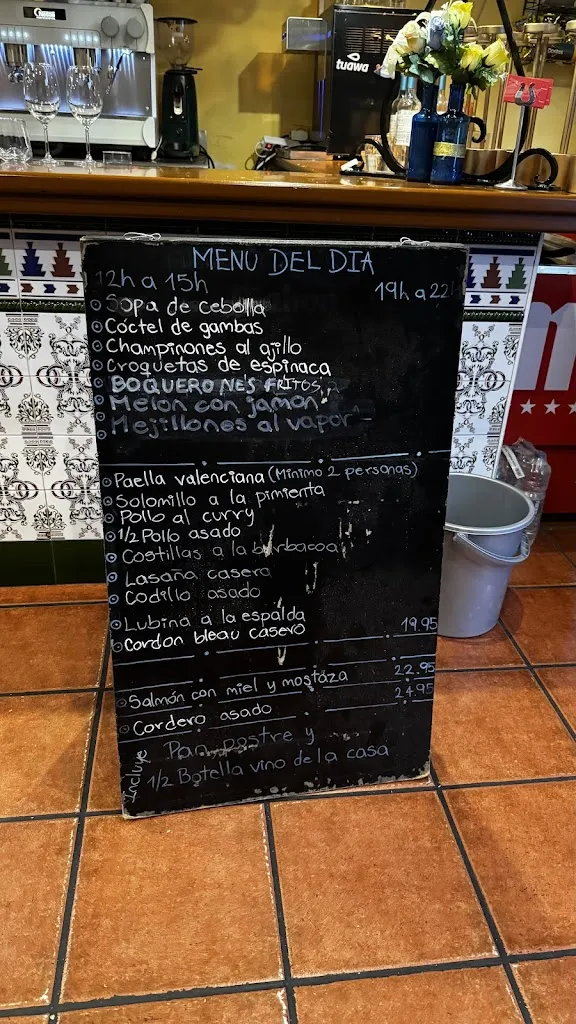 tuawa
MENU DEL DIA
12h a 15h
19h a 22h
Sopa de cebolla
Cóctel de gambas
Champiñones al ajillo
Croquetas de espinaca
BOQUERONES FRITOS
Melon con jamon
Mejillones al vapor
Paella valenciana (Mínimo 2 personas)
Solomillo a la pimienta
Pollo al curry
1/2 Pollo asado
Costillas a la barbacoa
Lasaña casera
Codillo asado
Lubina a la espalda
Cordon bleau casero 19.95
Salmón con miel y mostaza 22.95
Cordero asado 24.95
Incluye Pan, postre y
1/2 Botella vino de la casa